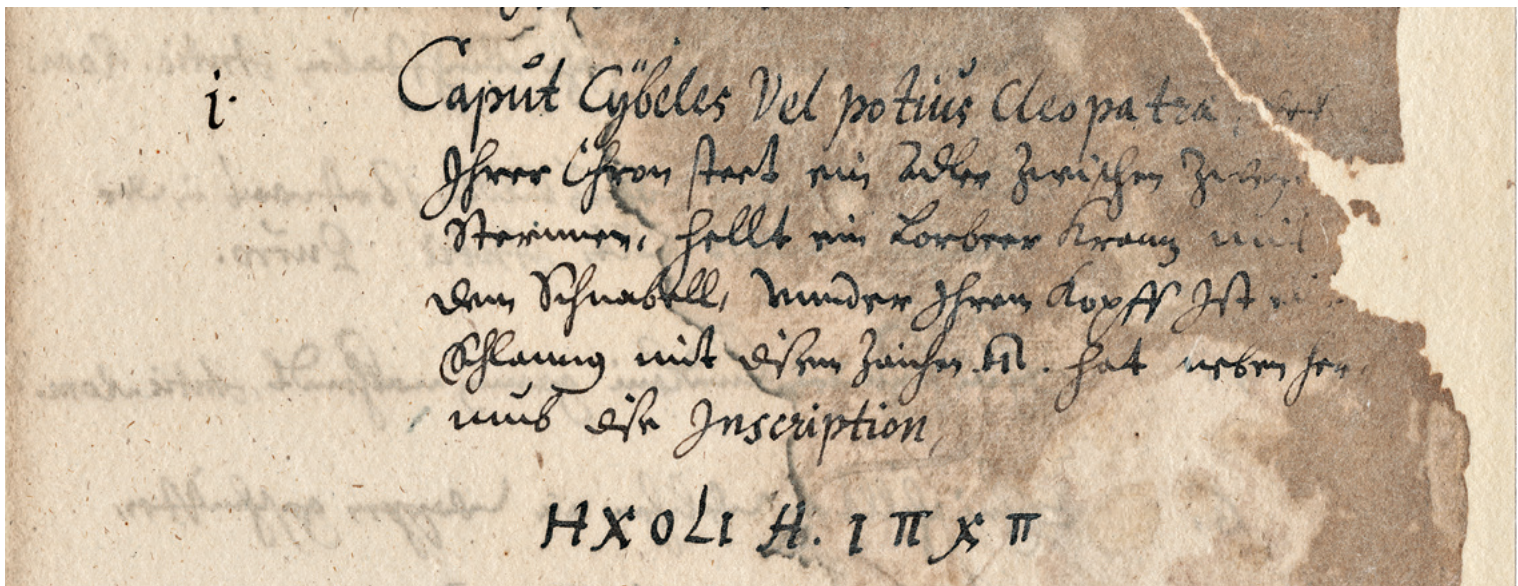 i.
Caput Cÿbeles Vel potius Cleopatra
Ihrer Chron steet ein Adler Zwischen Zwen
Sternnen, hellt ein Lorbeer Krantz mit
dem Schnabell, vnnder Ihrem Kopff Ist
Schlanng mit disem Zaichen. hat neben her
umb dise Inscription
HXOLI H. I π X π